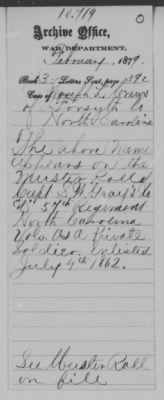 10.719
Archive Office,
WAR DEPARTMENT,
February 1879
Book 3 Letters Sent, page 392
Case of Joseph
of Forsyth Co
North Carolina
The above name
appears on the
Muster Roll of
Capt S. H. Gray's Co
57th Regiment
North Carolina
Vols. CSA Private
Soldier. Enlisted
July 4th 1862.
See Muster Roll
on file